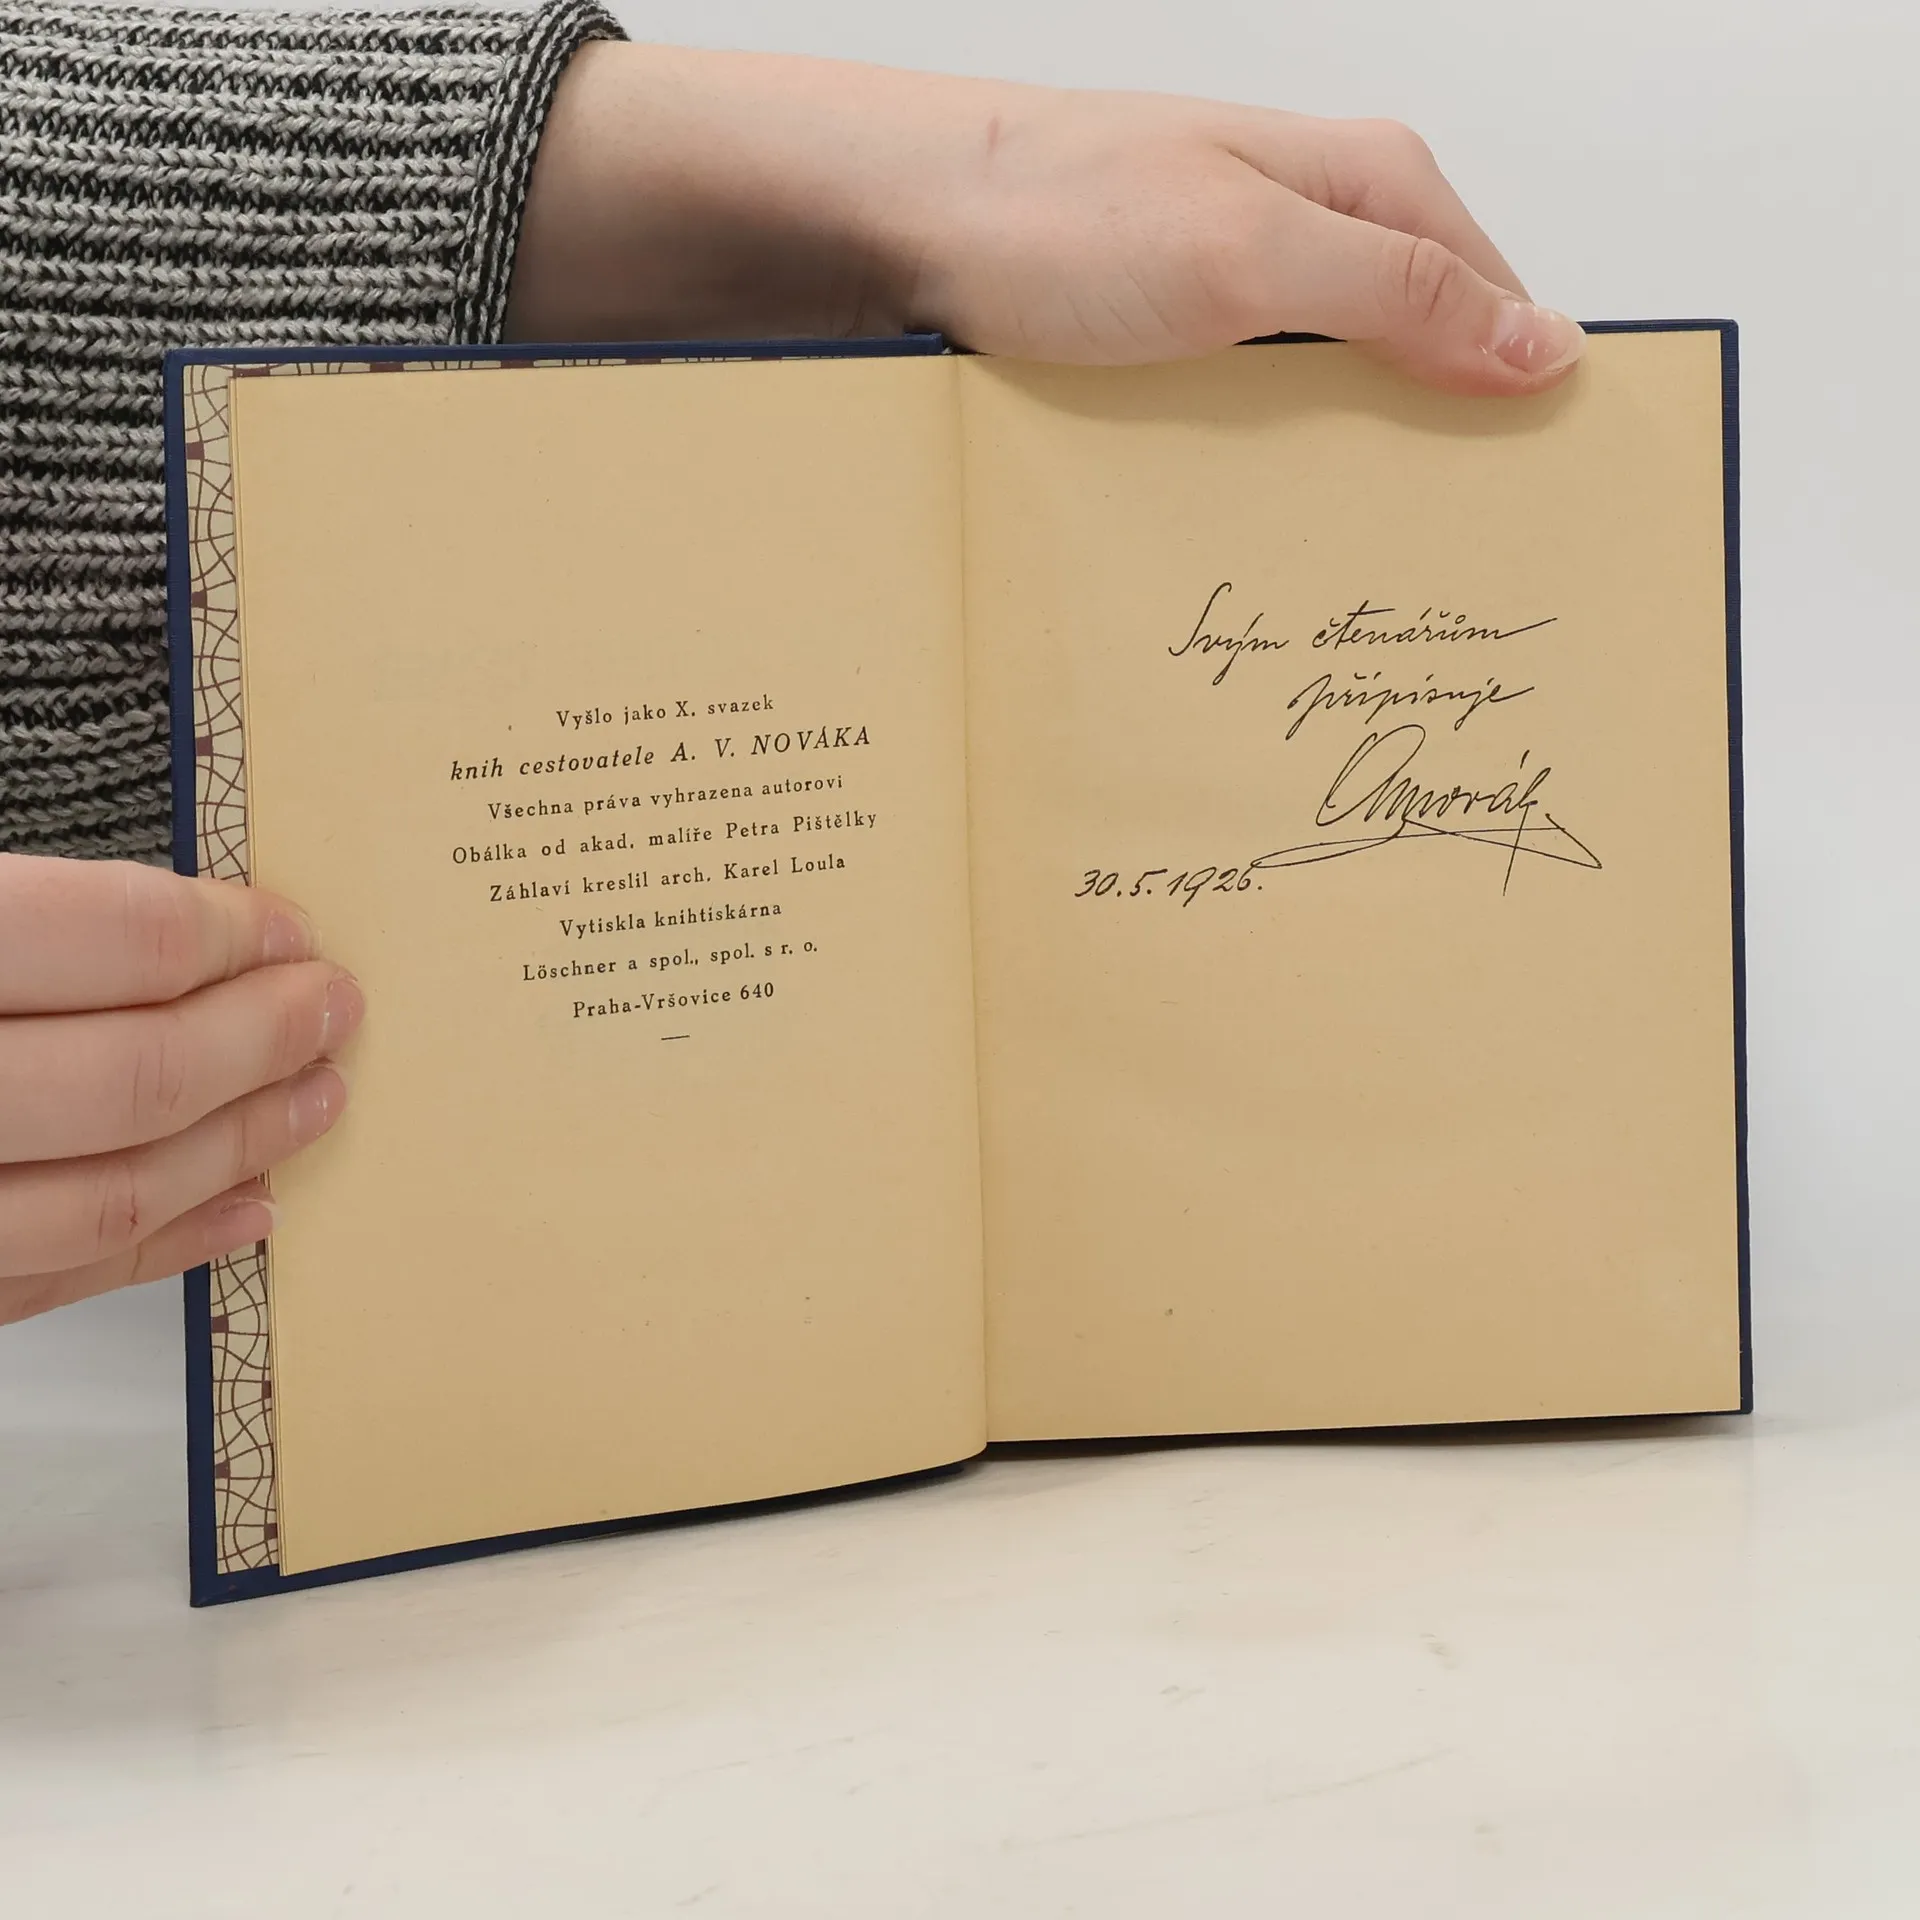 Vyšlo jako X. svazek
knih cestovatele A. V. NOVÁKA
Všechna práva vyhrazena autorovi
Obálka od akad. malíře Petra Pištělky
Záhlaví kreslil arch. Karel Loula
Vytiskla knihtiskárna
Löschner a spol., spol. s r. o.
Praha-Vršovice 640
Svým čtenářům
připisuje
AVNovák.
30.5.1926.